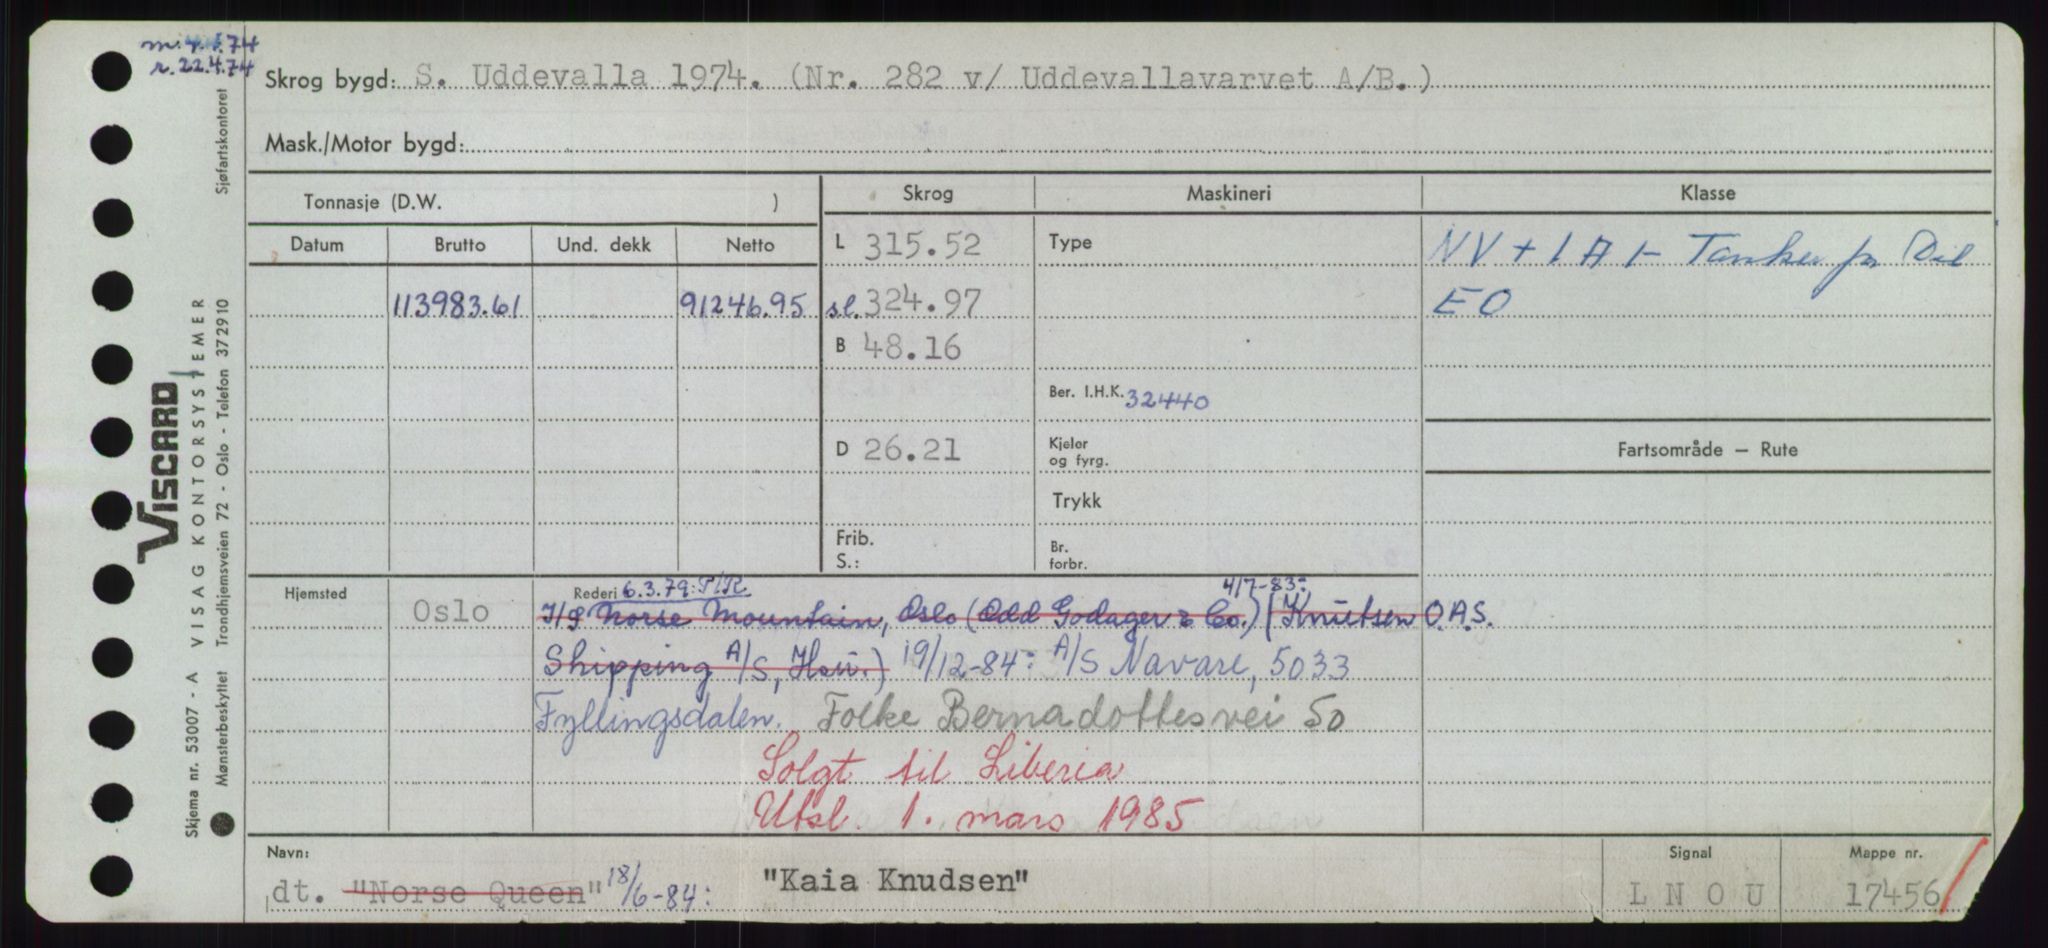 m. 4.1.74
r. 22.4.74
Skrog bygd: S. Uddevalla 1974. (Nr. 282 v/ Uddevallavarvet A/B.)
Mask./Motor bygd:
Tonnasje (D.W. ) Skrog Maskineri Klasse
Datum Brutto Und. dekk Netto L 315.52 Type NV + 1 A 1- Tanker for Oil
113983.61 91246.95 sl. 324.97 EO
B 48.16
Ber. I.H.K. 32440
D 26.21 Kjeler og fyrg. Fartsområde — Rute
Trykk
Frib.
S.:
Br. forbr.
Hjemsted Rederi 6.3.79: P/R 4/7-83:
Oslo I/S Norse Mountain, Oslo (Odd Godager & Co.) (Knutsen O.A.S.
Shipping A/S, Hau.) 19/12-84: A/S Navare, 5033
Fyllingsdalen. Folke Bernadottesvei 50
Solgt til Liberia
Utsl. 1. mars 1985
Navn: Signal Mappe nr.
dt. "Norse Queen" 18/6-84: "Kaia Knudsen" L N O U 17456
Skjema nr. 53007 - A VISAG KONTORSYSTEMER
VISCARD
Mønsterbeskyttet Trondhjemsveien 72 - Oslo - Telefon 372910 Sjøfartskontoret